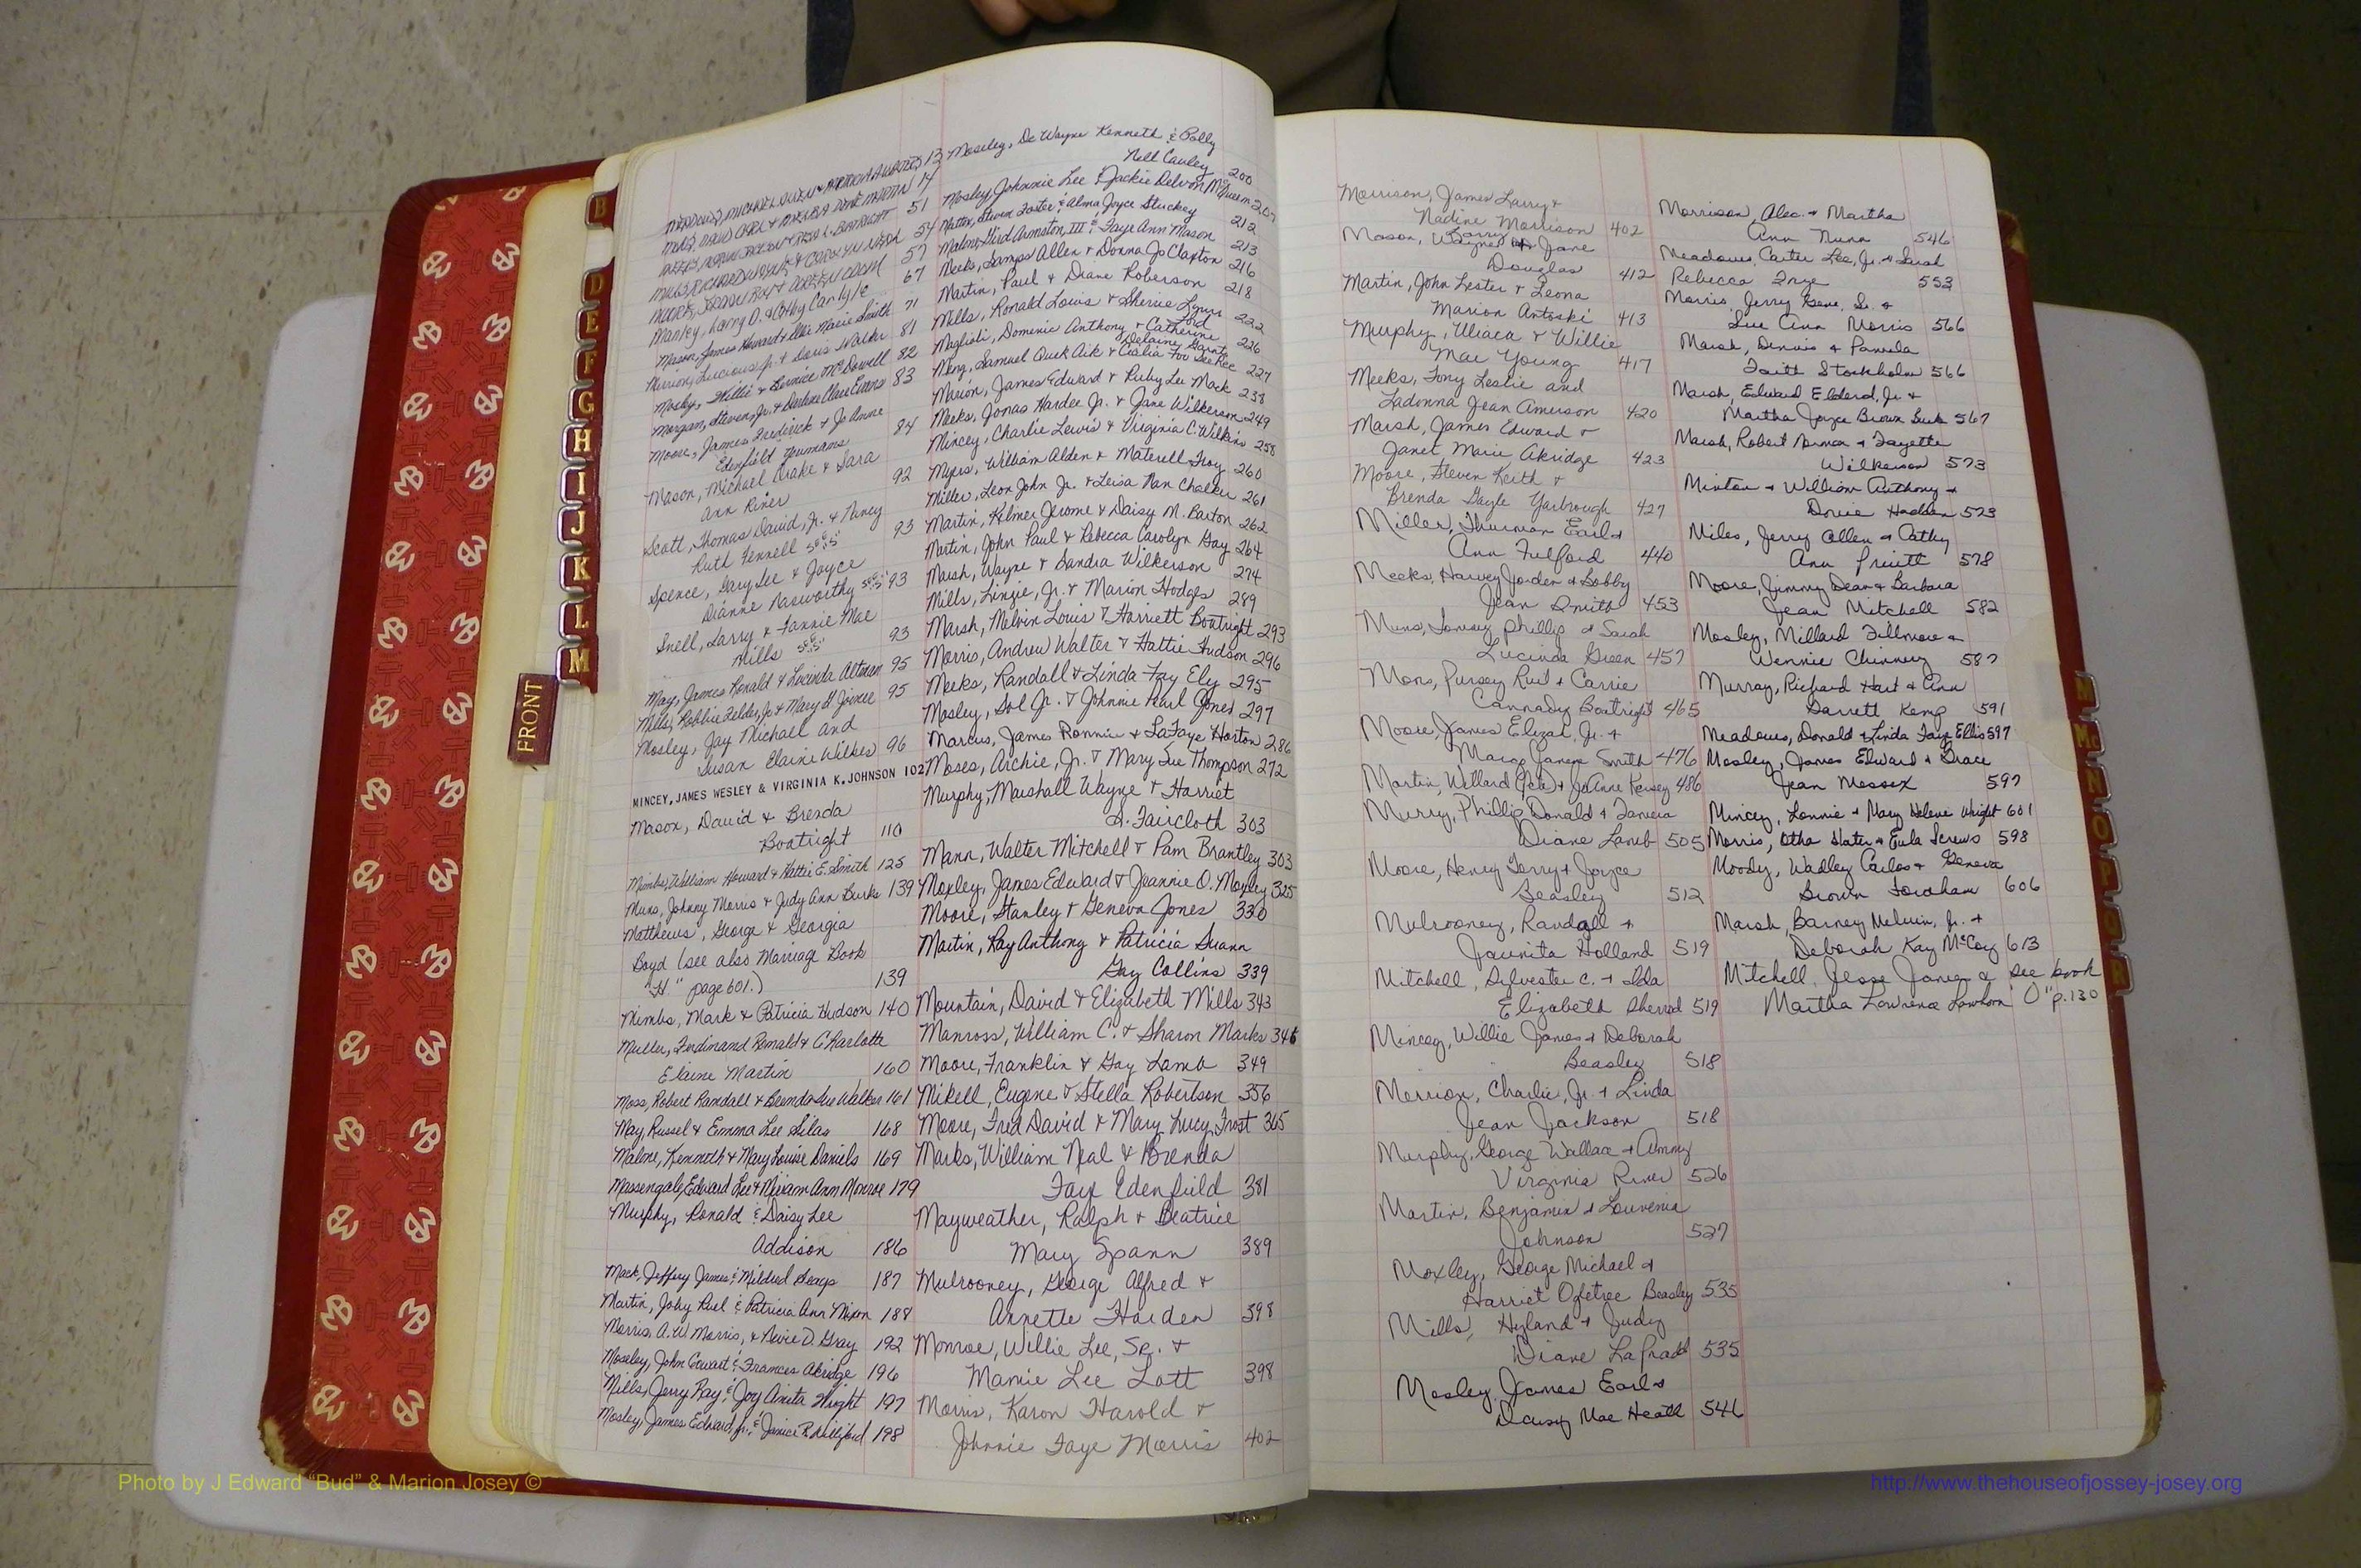 MEADOWS, MICHAEL OWEN & PATRICIA A. WOOTEN 13
MILES, DAVID CARL & MELBA MARTIN 14
BOATRIGHT 51
MILLS, RICHARD WAYNE & CAROLYN 54
MOORE, & DOREEN 57
Manley, Larry D. & Cathy Carlyle 67
Mason, James Howard & Ollie Marie Smith 71
Merrion, Lucious Jr. & Doris Walker 81
Mosley, Willie & Bernice McDowell 82
Morgan, Steven, Jr. & Darlene Clare Evans 83
Moore, James Fredrick & Jo Anne
Edenfield Youmans 84
Mason, Michael Drake & Sara
Ann Riner 92
Scott, Thomas David, Jr. & Nancy
Ruth Fennell see "S" 93
Spence, Gary Lee & Joyce
Dianne Nasworthy see "S" 93
Snell, Larry & Fannie Mae
Mills see "S" 93
May, James Ronald & Lucinda Altman 95
Miles, Robbie Felder, Jr. & Mary H. Joiner 95
Mosley, Jay Michael and
Susan Elaine Wilkes 96
MINCEY, JAMES WESLEY & VIRGINIA K. JOHNSON 102
Mason, David & Brenda
Boatright 110
Mimbs, William Howard & Hattie E. Smith 125
Muns, Johnny Morris & Judy Ann Burks 139
Matthews, George & Georgia
Boyd (see also Marriage Book
"H" page 601.) 139
Mimbs, Mark & Patricia Hudson 140
Muller, Ferdinand Ronald & Charlotte
Elaine Martin 160
Moss, Robert Randall & Brenda Sue Walker 161
May, Russel & Emma Lee Silas 168
Malone, Kenneth & Mary Louise Daniels 169
Massengale, Edward Lee & Miriam Ann Monroe 179
Murphy, Ronald & Daisy Lee
Addison 186
Mack, Jeffery James & Mildred Seags 187
Martin, Johy Ruel & Patricia Ann Nixon 188
Morris, A.W. Morris, & Nevie D. Gray 192
Moseley, John Ewart & Frances Akridge 196
Mills, Jerry Ray & Joy Anita Wright 197
Mosley, James Edward, Jr. & Janice R. Williford 198
Moseley, De Wayne Kenneth & Polly
Nell Cauley 200
Mosley, Johnnie Lee & Jackie Delvon McQueen 207
Mattox, Steven Foster & Alma Joyce Stuckey 212
Malone, Gird Armston, III & Faye Ann Mason 213
Meeks, Lamps Allen & Donna Jo Claxton 216
Martin, Paul & Diane Roberson 218
Mills, Ronald Louis & Sherrie Lynn
Ford 222
Maglioli, Dominic Anthony & Catherine
Delaine Grant 226
Meng, Samuel Quek Aik & Cislia Foo See Kee 227
Marion, James Edward & Ruby Lee Mack 238
Meeks, Jonas Hardee Jr. & Jane Wilkerson 249
Mincey, Charlie Lewis & Virginia C. Wilkins 258
Myers, William Alden & Materell Troy 260
Miller, Leon John Jr. & Leisa Nan Chalker 261
Martin, Kelmer Jerome & Daisy M. Barton 262
Martin, John Paul & Rebecca Carolyn Gay 264
Marsh, Wayne & Sandra Wilkerson 274
Mills, Linzie, Jr. & Marion Hodges 289
Marsh, Melvin Louis & Harriett Boatright 293
Morris, Andrew Walter & Hattie Hudson 296
Meeks, Randall & Linda Fay Ely 295
Mosley, Sol Jr. & Johnnie Pearl Jones 297
Marcus, James Ronnie & LaFaye Horton 286
Moses, Archie, Jr. & Mary Sue Thompson 272
Murphy, Marshall Wayne & Harriet
D. Faircloth 303
Mann, Walter Mitchell & Pam Brantley 303
Moxley, James Edward & Jeannie O. Moxley 325
Moore, Stanley & Geneva Jones 330
Martin, Ray Anthony & Patricia Suann
Gay Collins 339
Mountain, David & Elizabeth Mills 343
Manross, William C. & Sharon Marks 346
Moore, Franklin & Gay Lamb 349
Mikell, Eugene & Stella Robertson 356
Moore, Fred David & Mary Lucy Frost 365
Marks, William Neal & Brenda
Faye Edenfield 381
Mayweather, Ralph & Beatrice
Mary Spann 389
Mulrooney, George Alfred &
Annette Harden 398
Monroe, Willie Lee, Sr. &
Mamie Lee Lott 398
Morris, Karon Harold &
Johnnie Faye Morris 402
Morrison, James Larry &
Nadine Morrison 402
Mason, Wayne Larry & Jane
Douglas 412
Martin, John Lester & Leona
Marion Antoski 413
Murphy, Uliaca & Willie
Mae Young 417
Meeks, Tony Leslie and
Ladonna Jean Amerson 420
Marsh, James Edward &
Janet Marie Akridge 423
Moore, Steven Keith &
Brenda Gayle Yarbrough 427
Miller, Thurman Earl &
Ann Fulford 440
Meeks, Harvey Jorden & Bobby
Jean Smith 453
Muns, Tommy Phillip & Sarah
Lucinda Green 457
Mons, Pursey Ruel & Carrie
Cannady Boatright 465
Moore, James Elizah, Jr. &
Margo Janeen Smith 476
Martin, Willard & JoAnne Kersey 486
Murry, Phillip Donald & Tamera
Diane Lamb 505
Moore, Henry Terry & Joyce
Beasley 512
Mulrooney, Randall &
Jaunita Holland 519
Mitchell, Sylvester C. & Ida
Elizabeth Sherrod 519
Mincey, Willie James & Deborah
Beasley 518
Merrion, Charlie, Jr. & Linda
Jean Jackson 518
Murphy, George Wallace & Ammy
Virginia Riner 526
Martin, Benjamin & Louvenia
Johnson 527
Moxley, George Michael &
Harriet Ogletree Beasley 535
Mills, Hyland & Judy
Diane LaPradd 535
Mosley, James Earl &
Daisy Mae Heath 546
Morrison, Alec. & Martha
Ann Nunn 546
Meadows, Carter Lee, Jr. & Sarah
Rebecca Frye 553
Morris, Jerry Gene, Sr. &
Sue Ann Morris 566
Marsh, Dennis & Pamela
Faith Stockholm 566
Marsh, Edward Elderd, Jr. &
Martha Joyce Brown Burk 567
Marsh, Robert & Fayette
Wilkerson 573
Minton & William Anthony &
Dovie Hadden 573
Miles, Jerry Allen & Cathy
Ann Pruitt 578
Moore, Jimmy Dean & Barbara
Jean Mitchell 582
Mosley, Millard Fillmore &
Wennie Chinney 587
Murray, Richard Hart & Ann
Garrett Kemp 591
Meadows, Donald & Linda Faye Ellis 597
Mosley, James Edward & Grace
Jean Messex 597
Mincey, Lonnie & Mary Helene Wright 601
Morris, Otha Slater & Eula Screws 598
Moody, Wadley Carlos & Geneva
Brown Fordham 606
Marsh, Barney Melvin, Jr. &
Deborah Kay McCoy 613
Mitchell, Jesse James & see book
Martha Lawrence Lawhorn "O" p. 130
B
D
E
F
G
H
I
J
K
L
M
FRONT
M
Mc
N
O
P
Q
R
Photo by J Edward "Bud" & Marion Josey ©
http://www.thehouseofjossey-josey.org